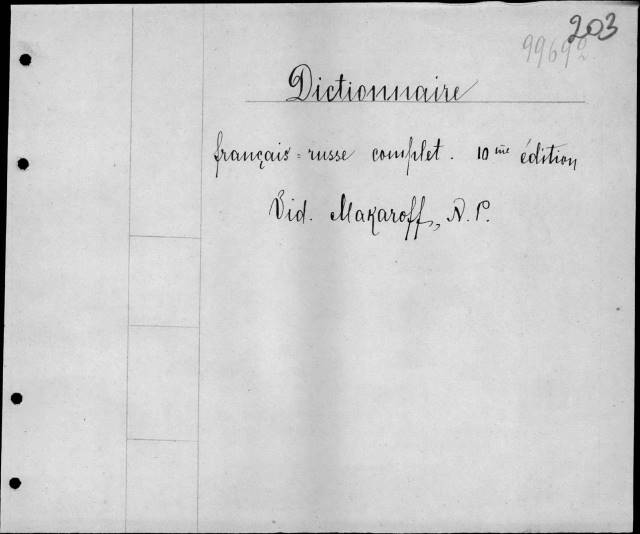 203
Dictionnaire
français=russe complet. 10me édition
Vid. Makaroff, N. P.